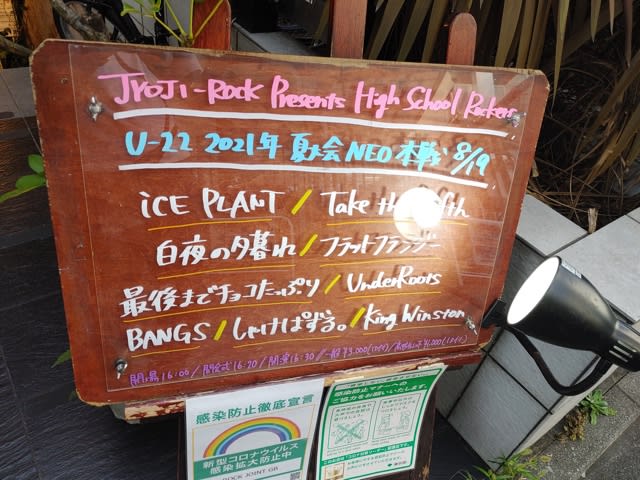 JYOJI-ROCK Presents High School Rockers
U-22 2021年 夏大会 NEO 本戦 8/19
iCE PLANT / Take the
白夜の夕暮れ / フラットフランジー
最後までチョコたっぷり / UnderRoots
BANGS / しゃけぱずる。 / King Winston
開場16:00 / 開会式16:20 / 開演16:30 / 一般¥3,000(1D付) / ¥1,000(1D付)
感染防止徹底宣言
新型コロナウイルス
感染拡大防止中
ROCK JOINT GB
感染防止マナーへの
ご協力をお願いいたします。